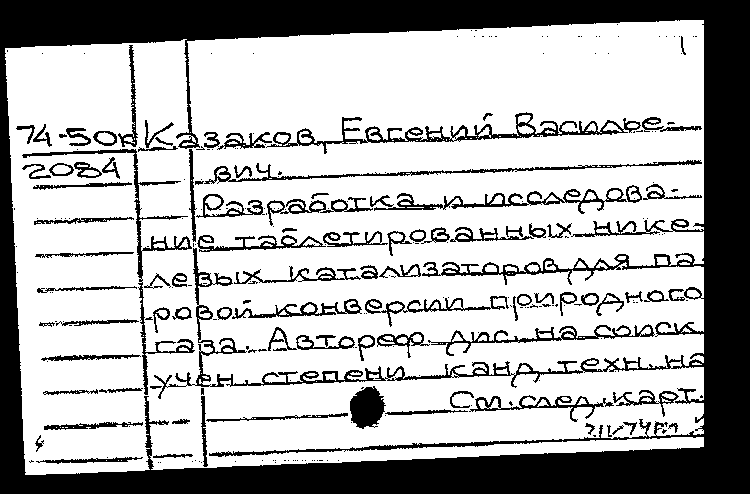 74-50к Казаков, Евгений Василье-
2084 вич.
Разработка и исследова-
ние таблетированных нике-
левых катализаторов для па-
ровой конверсии природного
газа. Автореф. дис. на соиск.
учен. степени канд. техн. на
См. след. карт.